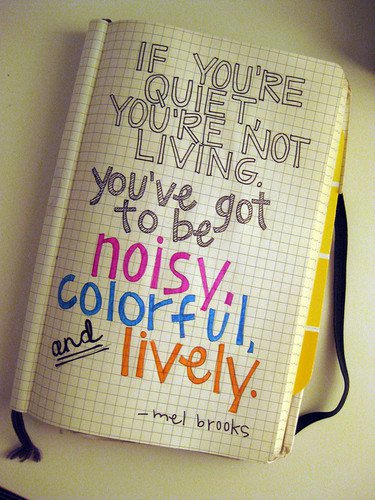 IF YOU'RE
QUIET,
YOU'RE NOT
LIVING.
you've got
to be
noisy.
colorful,
and lively.
-mel brooks